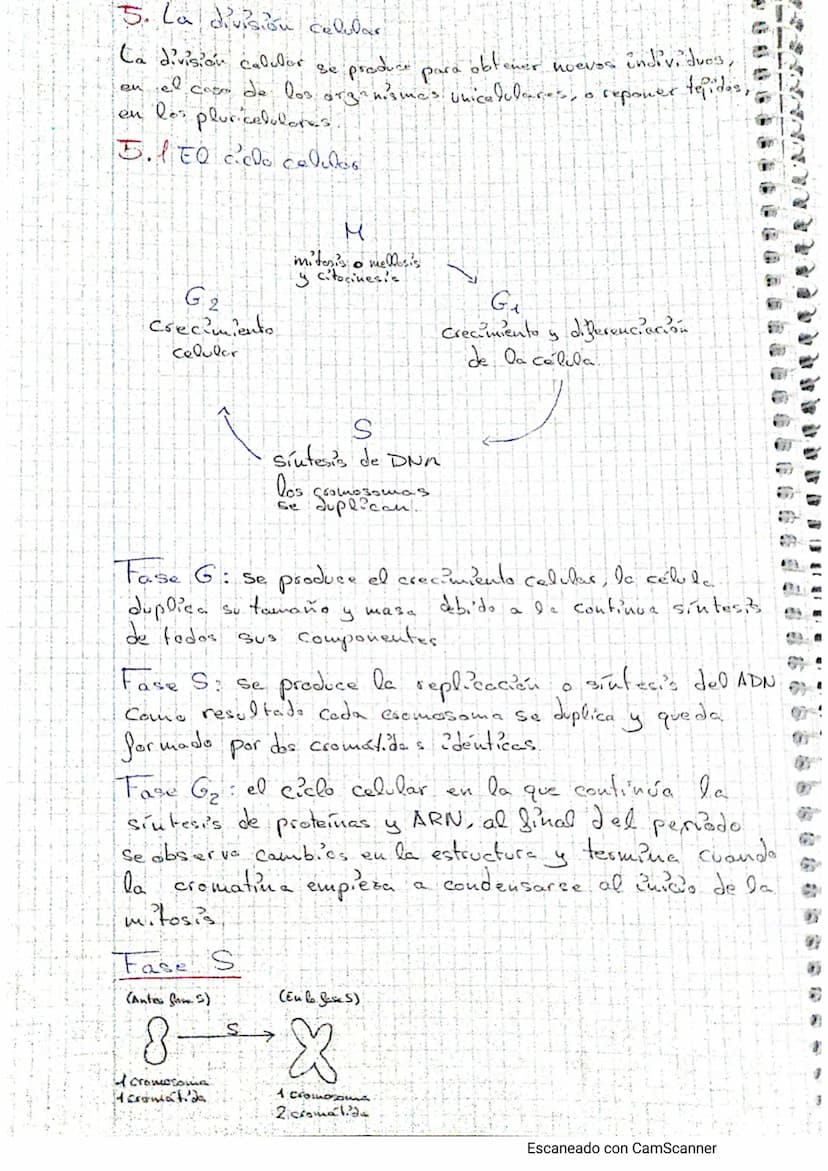 5. La división celular
La división celular se produce para obtener nuevos individuos,
en el caso de los organismos unicelulares, o reponer tejidos,
en los pluricelulares.
5.1 El ciclo celular
M
mitosis o meiosis
y citocinesis
G2
Crecimiento
celular
G1
Crecimiento y diferenciación
de la célula.
S
síntesis de DNA
los cromosomas
se duplican.
Fase G: se produce el crecimiento celular, la célula
duplica su tamaño y masa debido a la continua síntesis
de todos sus componentes
Fase S: se produce la replicación o síntesis del ADN
Como resultado cada cromosoma se duplica y queda
formado por dos cromátidas idénticas.
Fase G2: el ciclo celular en la que continúa la
síntesis de proteínas y ARN, al final del periodo
se observa cambios en la estructura y termina cuando
la cromatina empieza a condensarse al inicio de la
mitosis
Fase S
(Antes fase S) (En la fase S)
S
1 cromosoma
1 cromátida
1 cromosoma
2 cromátida
Escaneado con CamScanner